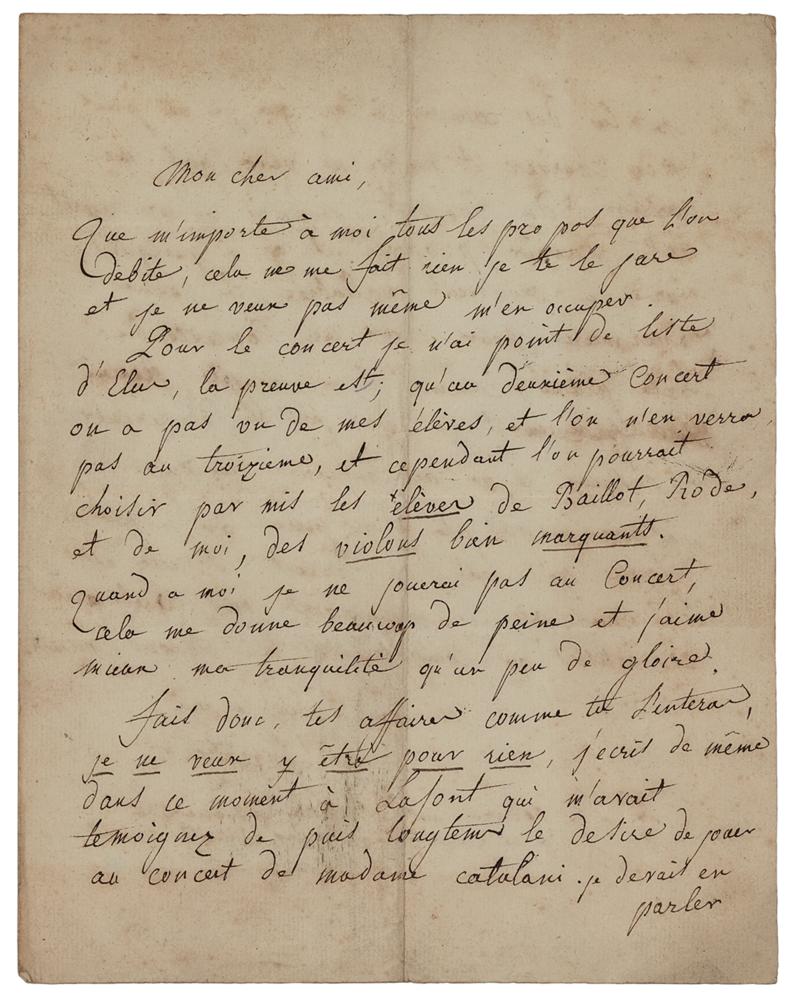 Mon cher ami,
Que m'importe à moi tous les propos que l'on
debite, cela ne me fait rien je te le jure
et je ne veux pas même m'en occuper.
Pour le concert je n'ai point de liste
d'Elus, la preuve est; qu'au deuxième Concert
on a pas vu de mes élèves, et l'on n'en verra
pas au troizieme, et cependant l'on pourrait
choisir par mis les élèves de Baillot, Rode,
et de moi, des violons bien marquants.
Quand a moi je ne jouerai pas au Concert,
cela me donne beaucoup de peine et j'aime
mieux ma tranquilité qu'un peu de gloire.
fais donc, tes affaires comme tu l'entera,
je ne veux y être pour rien, j'ecris de même
dans ce moment à Lafont qui m'avait
temoignez de puis longtems le desire de jouer
au concert de madame catalani. je devait en
parler